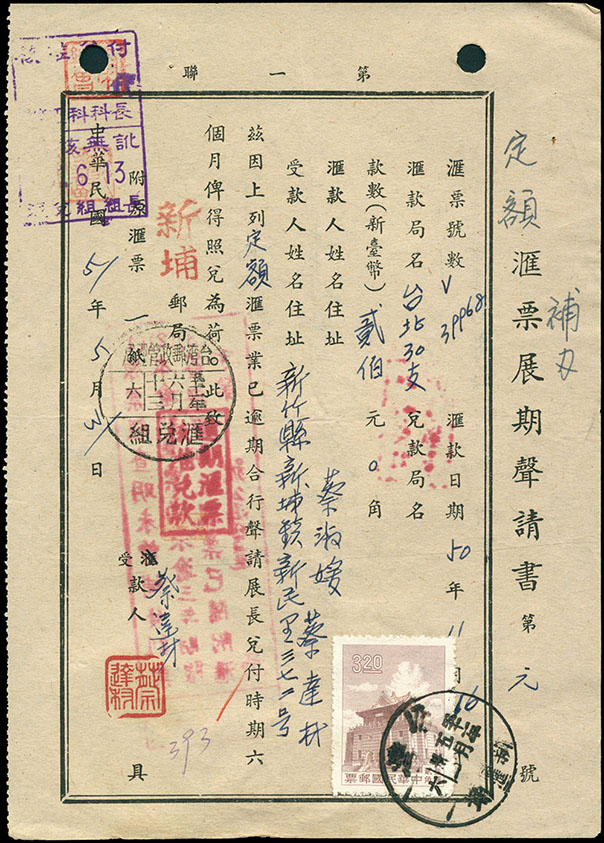 第一聯
定額匯票展期聲請書 第元號
補力
匯票號數 V 399681 匯款日期 50年11月16
匯款局名 台北30支 兌款局名
款數(新臺幣)貳佰元0角
匯款人姓名住址 蔡淑媛
受款人姓名住址 蔡達材
新竹縣新埔鎮新民里三七二号
茲因上列定額匯票業已逾期合行聲請展長兌付時期六
個月俾得照兌為荷此致
新埔郵局
附原匯票一紙
匯受款人 蔡達材 具
中華民國51年5月31日
393
付
科科長
訛無核
6 13
組組長
台灣郵政管理局
五十一年
六月
十三
十六
匯兌組
匯票
兌款
蔡達材
3.20
中華民國郵票